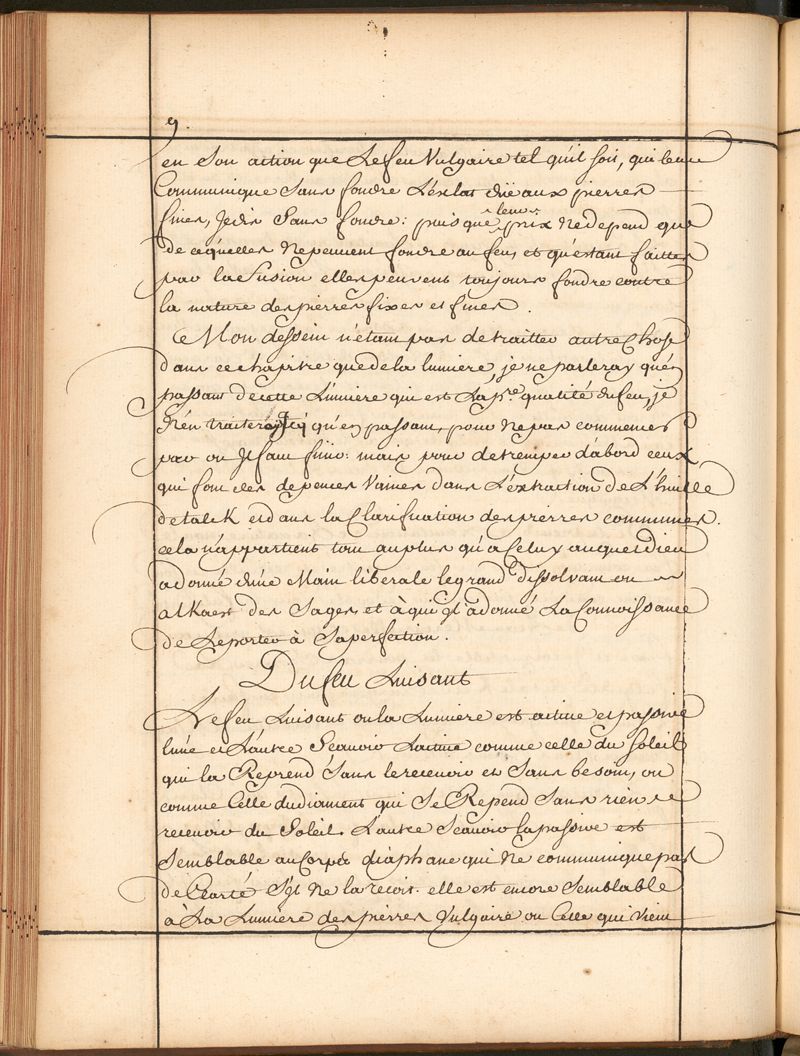 9.
en Son action que Le feu Vulgaire tel qu'il soit, qui leur
Communique Sans fondre L'éclat düe aux pierres
fines, Je dis Sans fondre: puis que leur prix Ne depend que
de ce qu'elles Ne peuvent fondre au feu, et qu'estant faittes
par la fusion elles peuvent toujours fondre contre
la nature des pierres fixes et fines.
Mon dessein n'étant pas de traitter autre Chose
dans ce chapitre que de la lumiere, je ne parleray qu'en
passant de cette Lumiere qui est La pre. qualité du feu, je
N'en traiteray icy qu'en passant, pour Ne pas commencer
par ou Il faut finir: mais pour detremper d'abord ceux
qui font des depences Vaines dans L'extraction de L'huille
de talcK et dans la Clarification des pierres communes.
cela n'appartient tout au plus qu'a Celuy auquel dieu
a donné d'une Main liberale le grand dissolvant ou
alKaest des Sages, et à qui il a donné La Connoissance
de Le porter à Sa perfection.
Du feu Luisant
Le feu Luisant ou la Lumiere est active et passive
l'une et L'autre Scavoir L'active comme celle du Soleil
qui la Reprend Sans le recevoir et Sans besoin, ou
comme Celle du diament qui Se Repend Sans rien
recevoir du Soleil. L'autre Scavoir la passive est
Semblable au Corps diaphane qui Ne communique pas
de Clarté S'il Ne la recoit. elle est encore Semblable
à La Lumiere des pierres Vulgaire ou Celle qui Vient